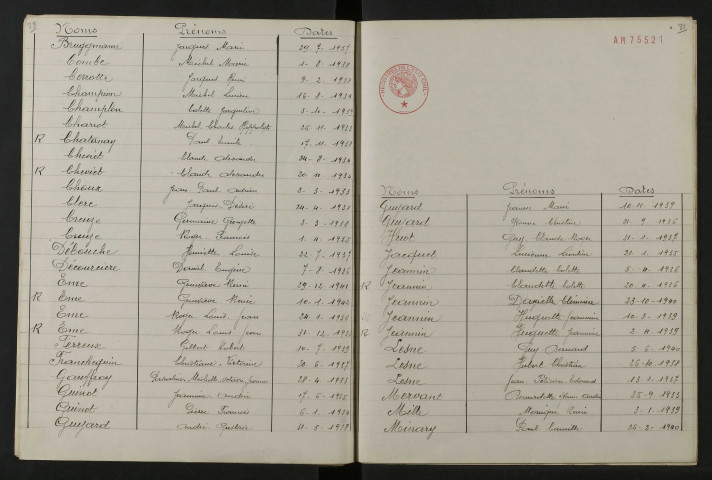 Noms Prénoms Dates
Bruggmann Jacques Marie 29.7.1937
Combe Michel Marie 1.8.1938
Jacques 9.2.1938
Champion Michel Lucien 16.8.1934
Champion Colette Jacqueline
Chariot Michel Charles Hippolyte 25.11.1933
R Chatenay Paul 17.11.1938
Cheviet Claude Alexandre 24.8.1934
R Cheviet Claude Alexandre 20.11.1934
Choux Jean Paul 3.3.1938
Clerc Jacques Désiré 24.4.1938
Creuze Germaine Georgette 3.3.1938
Creuze Roger Francois 1.4.1935
Débouche Henriette Louise 22.7.1937
Décourcière Daniel Eugène 7.8.1936
Eme Geneviève René 29.12.1941
R Eme Geneviève Renée 10.1.1942
Eme Roger Louis Jean 24.1.1938
R Eme Roger Louis Jean 31.12.1938
Ferreux Gilbert Robert 10.7.1939
Franchequin Christiane Victorine 20.6.1937
Gauffroy Michelle 28.4.1933
Guinot Jeannine 17.6.1935
Guinot Pierre Francois 6.1.1934
Guyard André Gustave 31.5.1938
AM75521
Noms Prénoms Dates
Guyard Jeanne Marie 10.11.1939
Guyard Christine 21.9.1936
Huot Guy Claude Roger 31.1.1937
Jacquet Lucienne 31.1.1935
Jeannin Claudette Colette 5.4.1936
R Jeannin Claudette Colette 20.4.1936
Jeannin Danielle 23.10.1940
Jeannin Huguette Jeannine 10.3.1939
R Jeannin Huguette Jeannine 2.4.1939
Lesne Guy Bernard 5.6.1940
Lesne Hubert Christian 26.10.1938
Lesne Jean Edouard 13.1.1937
Mervant Bernadette 25.9.1933
Mille Monique 3.1.1939
Minary Paul Camille 25.2.1940